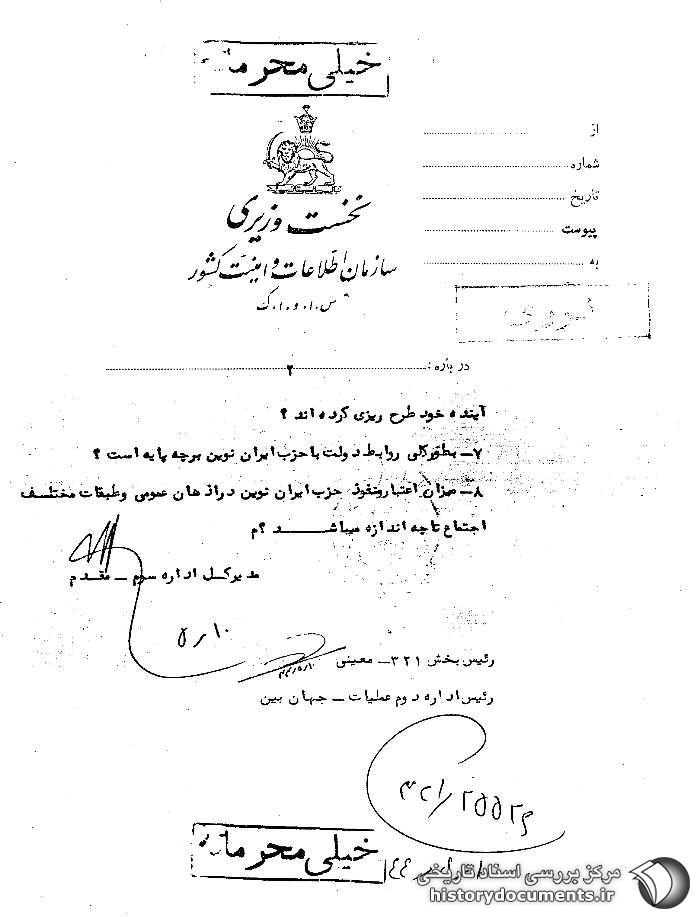 خیلی محرمانه
نخست وزیری
سازمان اطلاعات و امنیت کشور
س.ا.و.ا.ک
از
شماره
تاریخ
پیوست
به
فوری
در باره :
۲
آینده خود طرح ریزی کرده اند ؟
۷ـ بطورکلی روابط دولت با حزب ایران نوین برچه پایه است ؟
۸ـ میزان اعتبار ونفوذ حزب ایران نوین در اذهان عمومی وطبقات مختلف
اجتماع تاچه اندازه میباشد ؟م
مدیرکل اداره سوم ـ مقدم
۱۰ر۵
رئیس بخش ۳۲۱ـ معینی
رئیس اداره دوم عملیات ـ جهان بین
خیلی محرمانه
مرکز بررسی اسناد تاریخی
historydocuments.ir